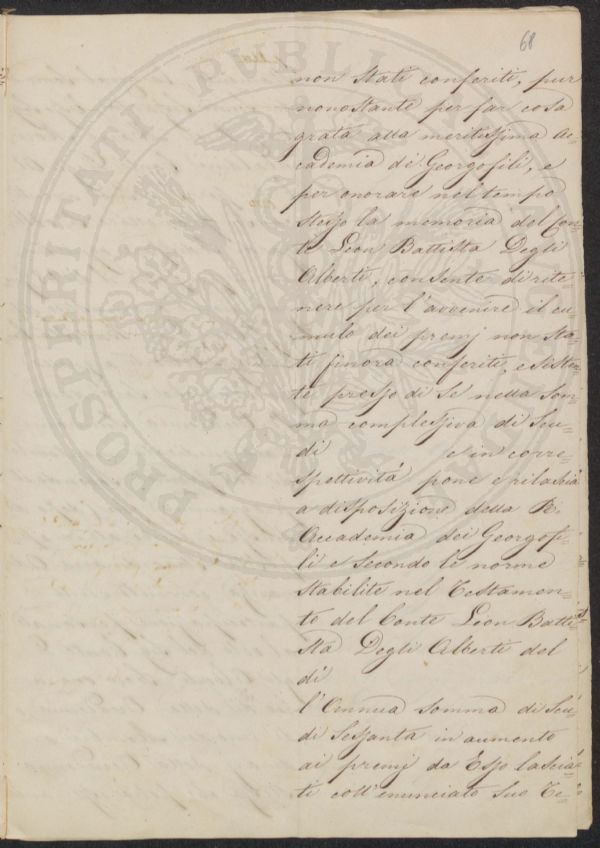 68
non stati conferiti, pur
nonostante per far cosa
grata alla meritissima Ac=
cademia di Georgofili, e
per onorare nel tempo
stesso la memoria del Con=
te Leon Battista Degli
Alberti, consente di rite=
nere per l'avvenire il cu=
mulo dei premj non sta=
ti finora conferiti, esisten=
te presso di se nella som=
ma complessiva di Scu=
di e in corre=
spettività pone e rilascia
a disposizione della R.
Accademia dei Georgofi=
li e secondo le norme
stabilite nel Testamen=
to del Conte Leon Batti=
sta Degli Alberti del
dì
l'Annua somma di Scu=
di Sessanta in aumento
ai premj da Esso lascia=
ti coll'enunciato suo Te=
PROSPERITATI PVBLICAE